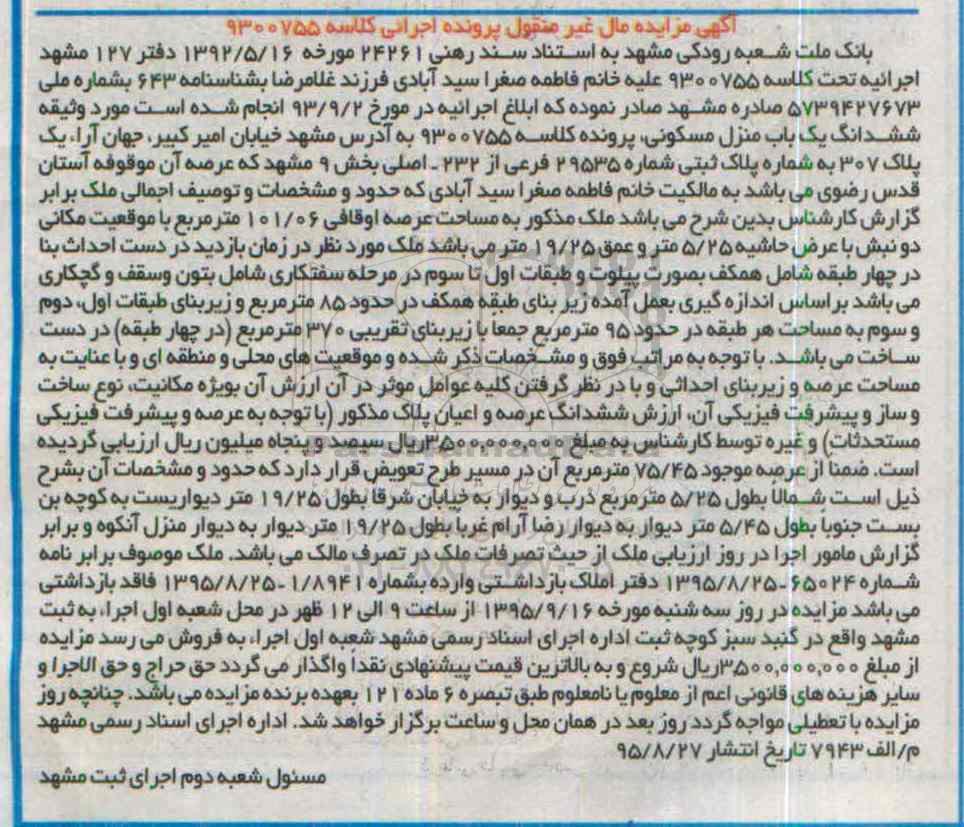 آگهی مزایده مال غیر منقول پرونده اجرائی کلاسه ۹۳۰۰۷۵۵
بانک ملت شعبه رودکی مشهد به استناد سند رهنی ۲۴۲۶۱ مورخه ۱۳۹۲/۵/۱۶ دفتر ۱۲۷ مشهد
اجرائیه تحت کلاسه ۹۳۰۰۷۵۵ علیه خانم فاطمه صغرا سید آبادی فرزند غلامرضا بشناسنامه ۶۴۳ بشماره ملی
۵۷۳۹۴۲۷۶۷۳ صادره مشهد صادر نموده که ابلاغ اجرائیه در مورخ ۹۳/۹/۲ انجام شده است مورد وثیقه
ششدانگ یک باب منزل مسکونی، پرونده کلاسه ۹۳۰۰۷۵۵ به آدرس مشهد خیابان امیر کبیر، جهان آرا، یک
پلاک ۳۰۷ به شماره پلاک ثبتی شماره ۲۹۵۳۵ فرعی از ۲۳۲ ـ اصلی بخش ۹ مشهد که عرصه آن موقوفه آستان
قدس رضوی می باشد به مالکیت خانم فاطمه صغرا سید آبادی که حدود و مشخصات و توصیف اجمالی ملک برابر
گزارش کارشناس بدین شرح می باشد ملک مذکور به مساحت عرصه اوقافی ۱۰۱/۰۶ مترمربع با موقعیت مکانی
دو نبش با عرض حاشیه ۵/۲۵ متر و عمق ۱۹/۲۵ متر می باشد ملک مورد نظر در زمان بازدید در دست احداث بنا
در چهار طبقه شامل همکف بصورت پیلوت و طبقات اول تا سوم در مرحله سفتکاری شامل بتون وسقف و گچکاری
می باشد بر اساس اندازه گیری بعمل آمده زیر بنای طبقه همکف در حدود ۸۵ مترمربع و زیربنای طبقات اول، دوم
و سوم به مساحت هر طبقه در حدود ۹۵ مترمربع جمعا با زیربنای تقریبی ۳۷۰ مترمربع (در چهار طبقه) در دست
ساخت می باشد. با توجه به مراتب فوق و مشخصات ذکر شده و موقعیت های محلی و منطقه ای و با عنایت به
مساحت عرصه و زیربنای احداثی و با در نظر گرفتن کلیه عوامل موثر در آن ارزش آن بویژه مکانیت، نوع ساخت
و ساز و پیشرفت فیزیکی آن، ارزش ششدانگ عرصه و اعیان پلاک مذکور (با توجه به عرصه و پیشرفت فیزیکی
مستحدثات) و غیره توسط کارشناس به مبلغ ۳،۵۰۰،۰۰۰،۰۰۰ریال سیصد و پنجاه میلیون ریال ارزیابی گردیده
است. ضمنا از عرصه موجود ۷۵/۴۵ مترمربع آن در مسیر طرح تعویض قرار دارد که حدود و مشخصات آن بشرح
ذیل است شمالا بطول ۵/۲۵ مترمربع درب و دیوار به خیابان شرقا بطول ۱۹/۲۵ متر دیواریست به کوچه بن
بست جنوبا بطول ۵/۴۵ متر دیوار به دیوار رضا آرام غربا بطول ۱۹/۲۵ متر دیوار به دیوار منزل آنکوه و برابر
گزارش مامور اجرا در روز ارزیابی ملک از حیث تصرفات ملک در تصرف مالک می باشد. ملک موصوف برابر نامه
شماره ۶۵۰۲۴-۱۳۹۵/۸/۲۵ دفتر املاک بازداشتی وارده بشماره ۱/۸۹۴۱-۱۳۹۵/۸/۲۵ فاقد بازداشتی
می باشد مزایده در روز سه شنبه مورخه ۱۳۹۵/۹/۱۶ از ساعت ۹ الی ۱۲ ظهر در محل شعبه اول اجرا، به ثبت
مشهد واقع در گنبد سبز کوچه ثبت اداره اجرای اسناد رسمی مشهد شعبه اول اجرا، به فروش می رسد مزایده
از مبلغ ۳،۵۰۰،۰۰۰،۰۰۰ریال شروع و به بالاترین قیمت پیشنهادی نقداً واگذار می گردد حق حراج و حق الاجرا و
سایر هزینه های قانونی اعم از معلوم یا نامعلوم طبق تبصره ۶ ماده ۱۲۱ بعهده برنده مزایده می باشد. چنانچه روز
مزایده با تعطیلی مواجه گردد روز بعد در همان محل و ساعت برگزار خواهد شد. اداره اجرای اسناد رسمی مشهد
م/الف ۷۹۴۳ تاریخ انتشار ۹۵/۸/۲۷
مسئول شعبه دوم اجرای ثبت مشهد